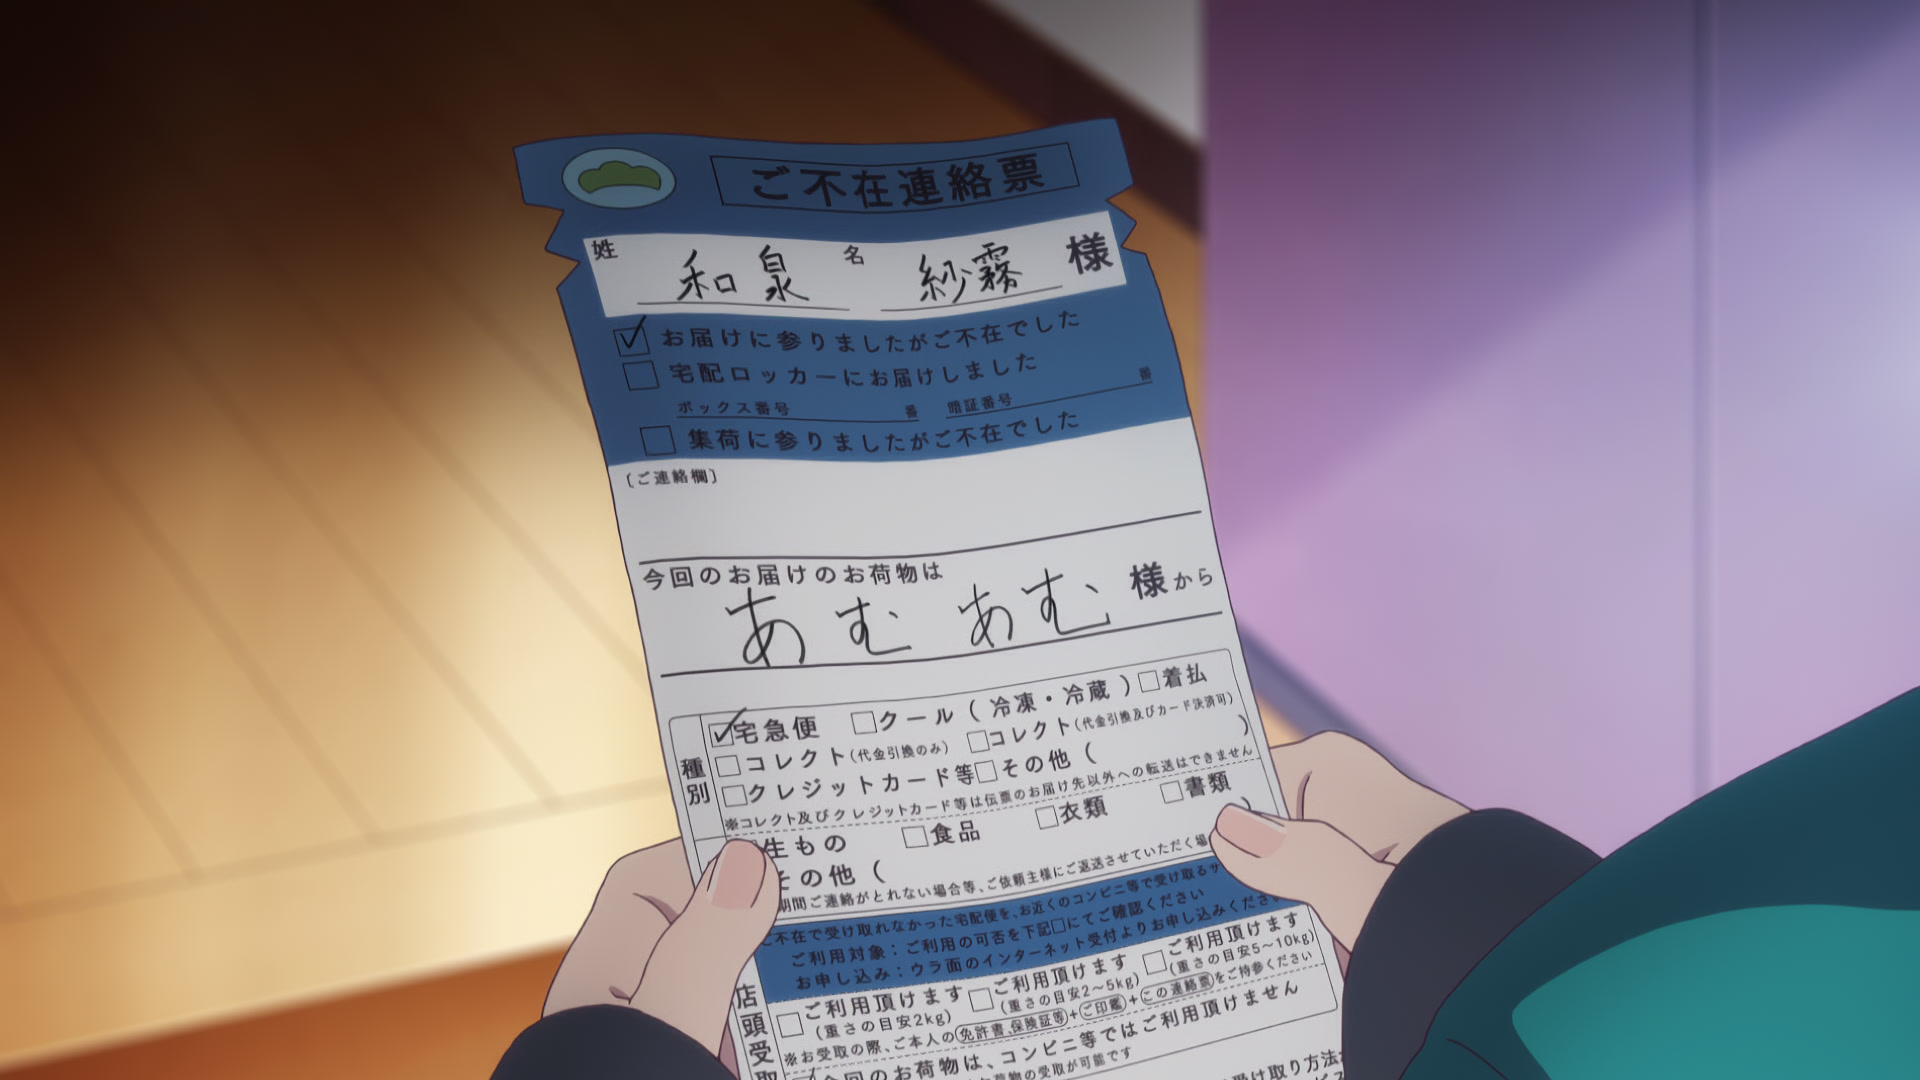 ご不在連絡票
姓 和泉 名 紗霧 様
お届けに参りましたがご不在でした
宅配ロッカーにお届けしました
ボックス番号 番 暗証番号 番
集荷に参りましたがご不在でした
〔ご連絡欄〕
今回のお届けのお荷物は
あむ あむ 様から
種別
宅急便 クール(冷凍・冷蔵) 着払
コレクト(代金引換のみ) コレクト(代金引換及びカード決済可)
クレジットカード等 その他( )
※コレクト及びクレジットカード等は伝票のお届け先以外への転送はできません
生もの 食品 衣類 書類
その他( )
期間ご連絡がとれない場合等、ご依頼主様にご返送させていただく場
ご不在で受け取れなかった宅配便を、お近くのコンビニ等で受け取るサ
ご利用対象:ご利用の可否を下記□にてご確認ください
お申し込み:ウラ面のインターネット受付よりお申し込みくださ
店頭受取
ご利用頂けます ご利用頂けます ご利用頂けます
(重さの目安2kg) (重さの目安2〜5kg) (重さの目安5〜10kg)
※お受取の際、ご本人の免許書、保険証等+ご印鑑+この連絡票をご持参ください
今回のお荷物は、コンビニ等ではご利用頂けません
荷物の受取が可能です
受け取り方法